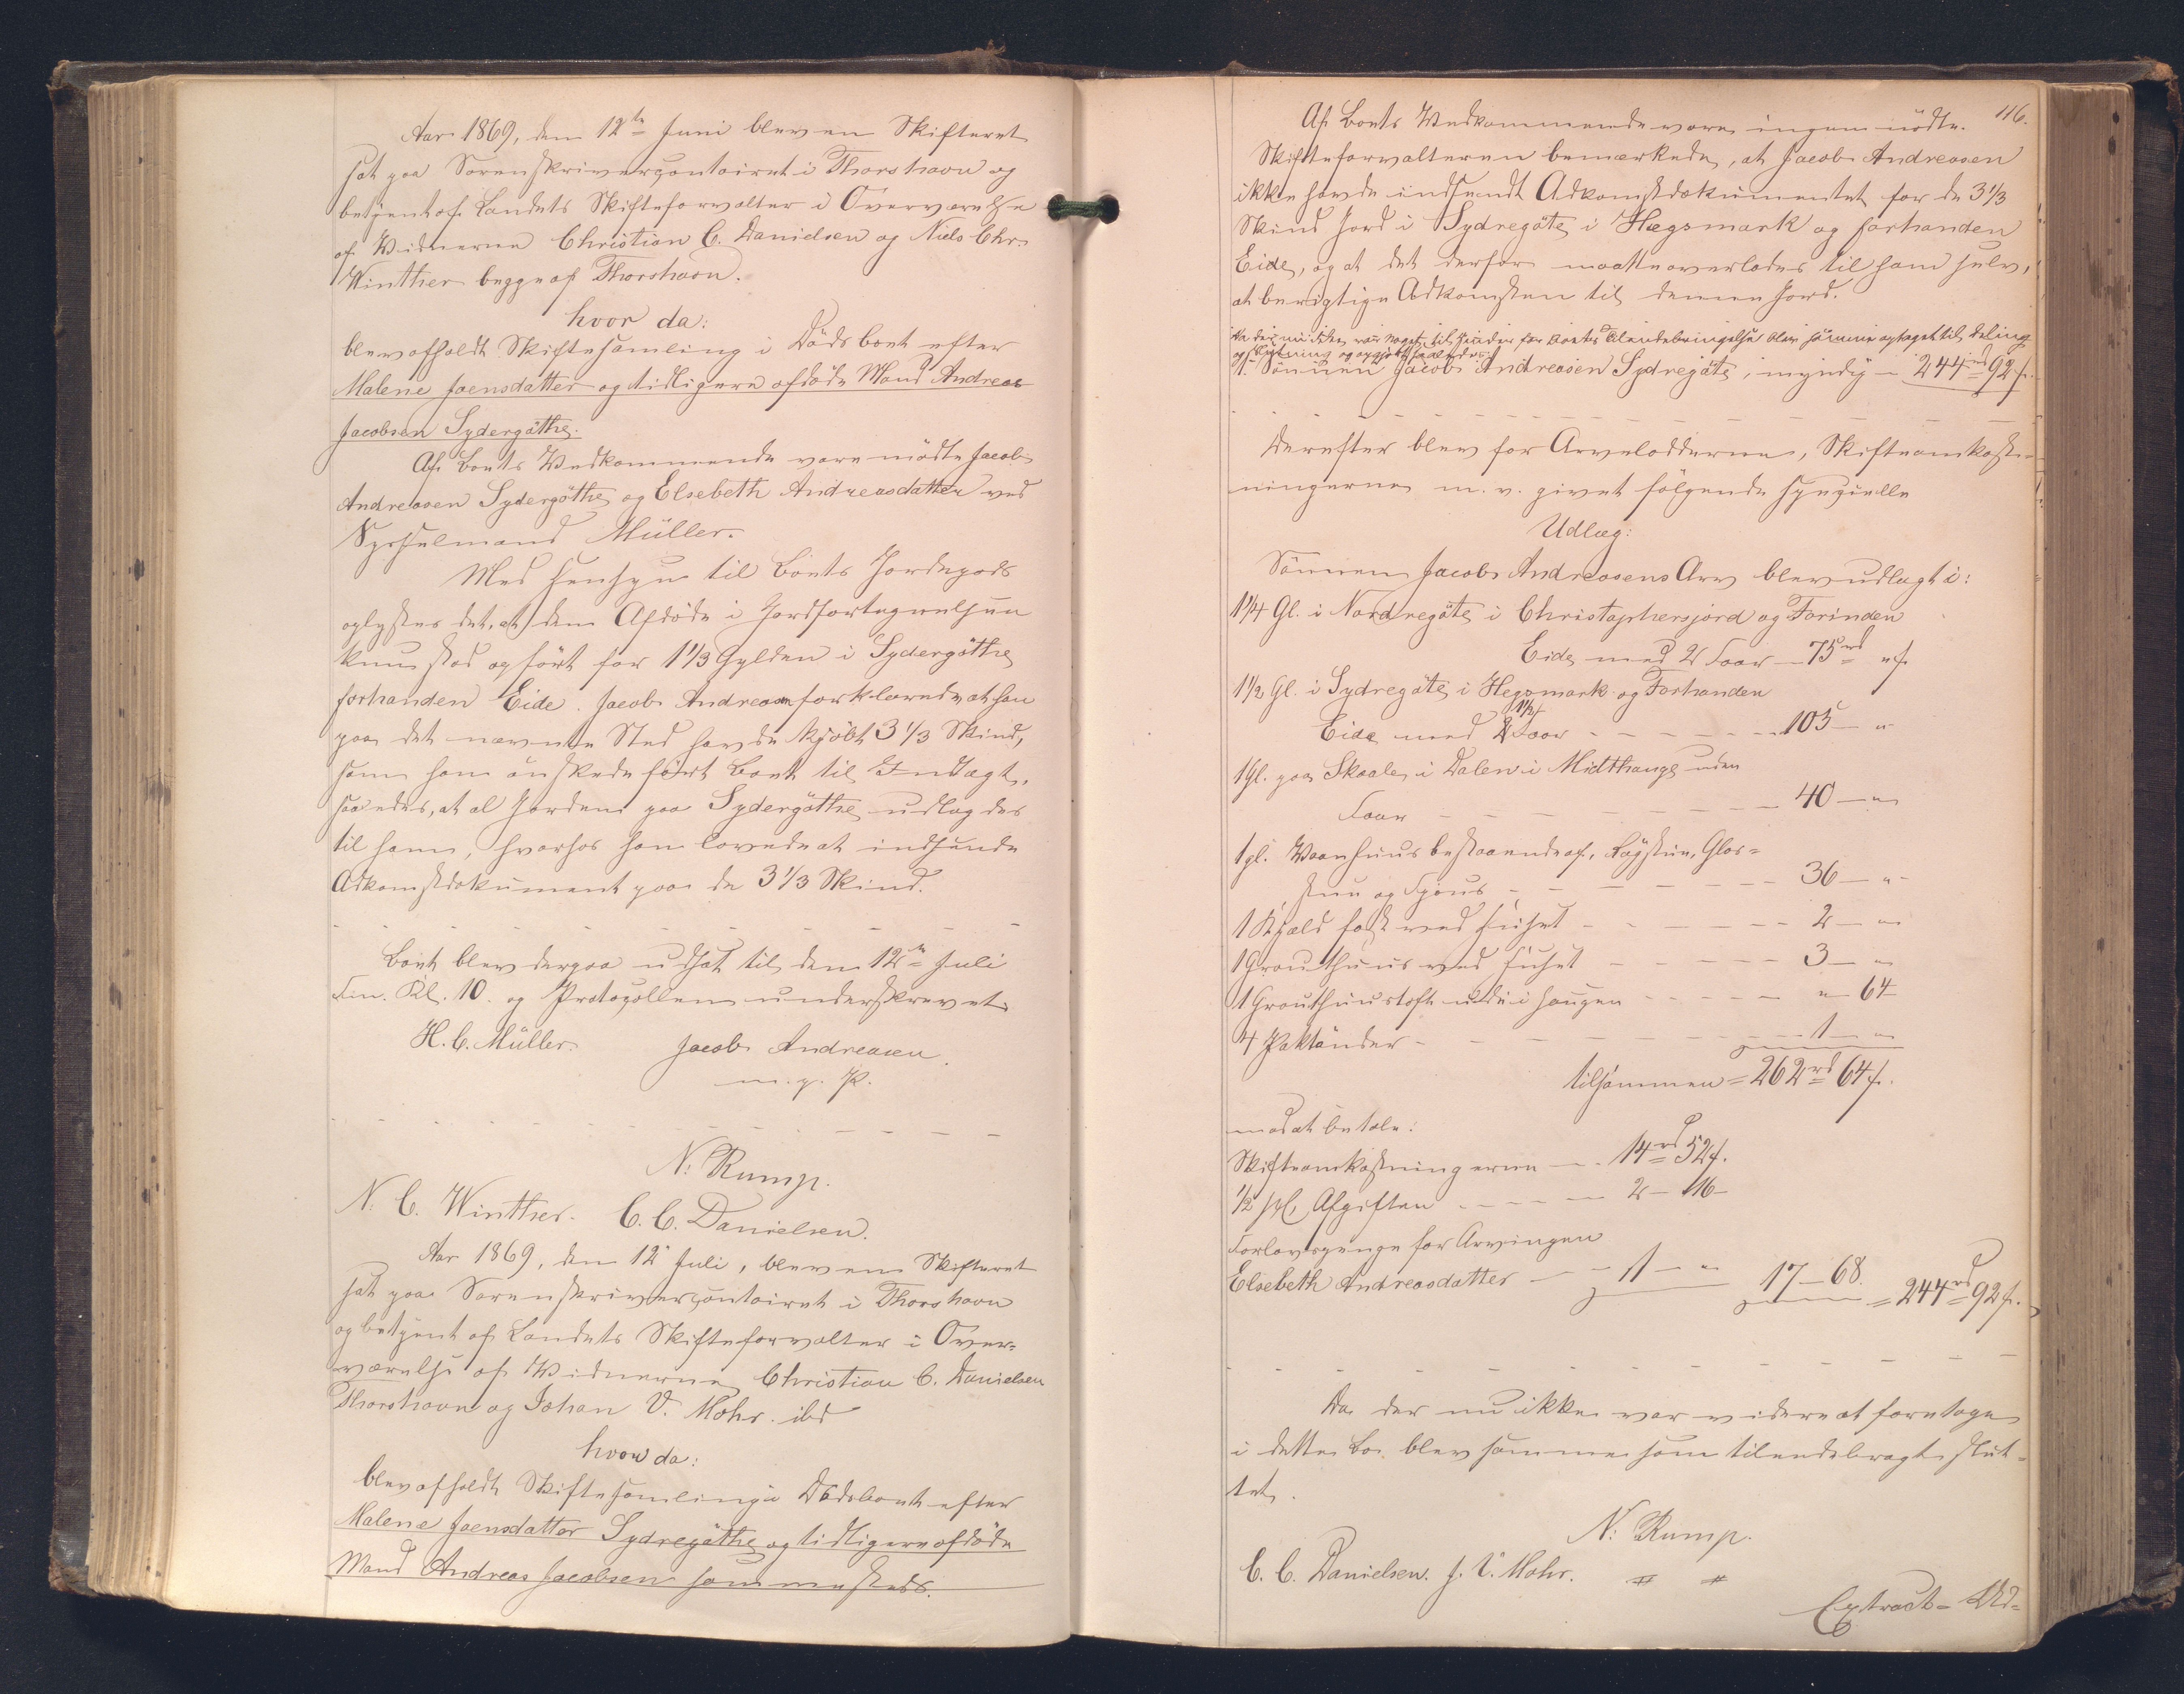 Aar 1869, den 12te Juni blev en Skifteret
sat paa Sorenskrivercontoiret i Thorshavn og
betjent af Landets Skifteforvalter i Overværelse
af Vidnerne Christian C. Danielsen og Niels Chr.
Winther begge af Thorshavn.
hvor da:
blev afholdt Skiftesamling i Dödsboet efter
Malene Joensdatter og tidligere afdöde Mand Andreas
Jacobsen Sydergöthe.
Af Boets Vedkommende vare mödte Jacob
Andreasen Sydergöthe og Elsebeth Andreasdatter ved
Sysselmand Müller.
Med Hensyn til Boets Jordegods
oplystes det, at den Afdöde i Jordfortegnelsen
kun stod opfört for 1 1/3 Gylden i Sydergöthe
forhanden Eide. Jacob Andreasen forklarede at han
paa det nævnte Sted havde kjöbt 3 1/3 Skind,
som han önskede fört Boet til Indtægt,
saaledes, at al Jorden paa Sydergöthe udlagdes
til ham, hvorhos han lovede at indsende
Adkomstdokument paa de 3 1/3 Skind.
Boet blev derpaa udsat til den 12te Juli
Fm. Kl. 10 og Protocollen underskrevet.
H. C. Müller. Jacob Andreasen
m. p. P.
N: Rump.
N. C. Winther. C. C. Danielsen.
Aar 1869, den 12 Juli, blev en Skifteret
sat paa Sorenskrivercontoiret i Thorshavn
og betjent af Landets Skifteforvalter i Over=
værelse af Vidnerne Christian C. Danielsen
Thorshavn og Johan V. Mohr ibd
hvor da:
blev afholdt Skiftesamling i Dödsboet efter
Malene Joensdatter Sydregöthe og tidligere afdöde
Mand Andreas Jacobsen sammesteds.
116.
Af Boets Vedkommende vare ingen mödte.
Skifteforvalteren bemærkede, at Jacob Andreasen
ikke havde indsendt Adkomstdokumentet for de 3 1/3
Skind Jord i Sydregöte i Hægsmark og forhanden
Eide, og at det derfor maatte overlades til ham selv,
at berigtige Adkomsten til denne Jord.
Da der nu ikke var noget til Hinder for Boets Tilendebringelse blev samme optaget til Deling
og Slutning og opgjort saaledes:
Sönnen Jacob Andreasen Sydregöte, myndig - 244rd 92 s.
Derefter blev for Arvelodderne, Skifteomkost=
ningerne m. v. givet fölgende specielle
Udlæg:
Sönnen Jacob Andreasens Arv blev udlagt i:
1 1/4 Gl. i Nordregöte i Christophersjord og Forinden
Eide med 2 Faar - 75rd " s.
1 1/2 Gl. i Sydregöte i Hegsmark og Forhanden
Eide med 1 1/2 Faar - 105 - "
1 Gl. paa Skaale i Dalen i Midthauge uden
Faar - 40 - "
1 gl. Vaanhuus bestaaende af, Rögstue, Glas=
stue og Fjous - 36 - "
1 Kjald fast ved Huset - 2 - "
1 Grouthuus ved Huset - 3 - "
1 Grouthuustoft ude i Haugen - " 64
4 Paktönder - 1 - "
tilsammen = 262rd 64 s.
mod at betale:
Skifteomkostningerne - 14rd 52 s.
1/2 pCt. Afgiften - 2 - 16 -
Forlovspenge for Arvingen
Elsebeth Andreasdatter - 1 - " 17 - 68. = 244rd 92 s.
Da der nu ikke var videre at foretage
i dette Bo blev samme som tilendebragt slut=
tet.
N: Rump.
C. C. Danielsen. J. V. Mohr.
Extract= Ud=